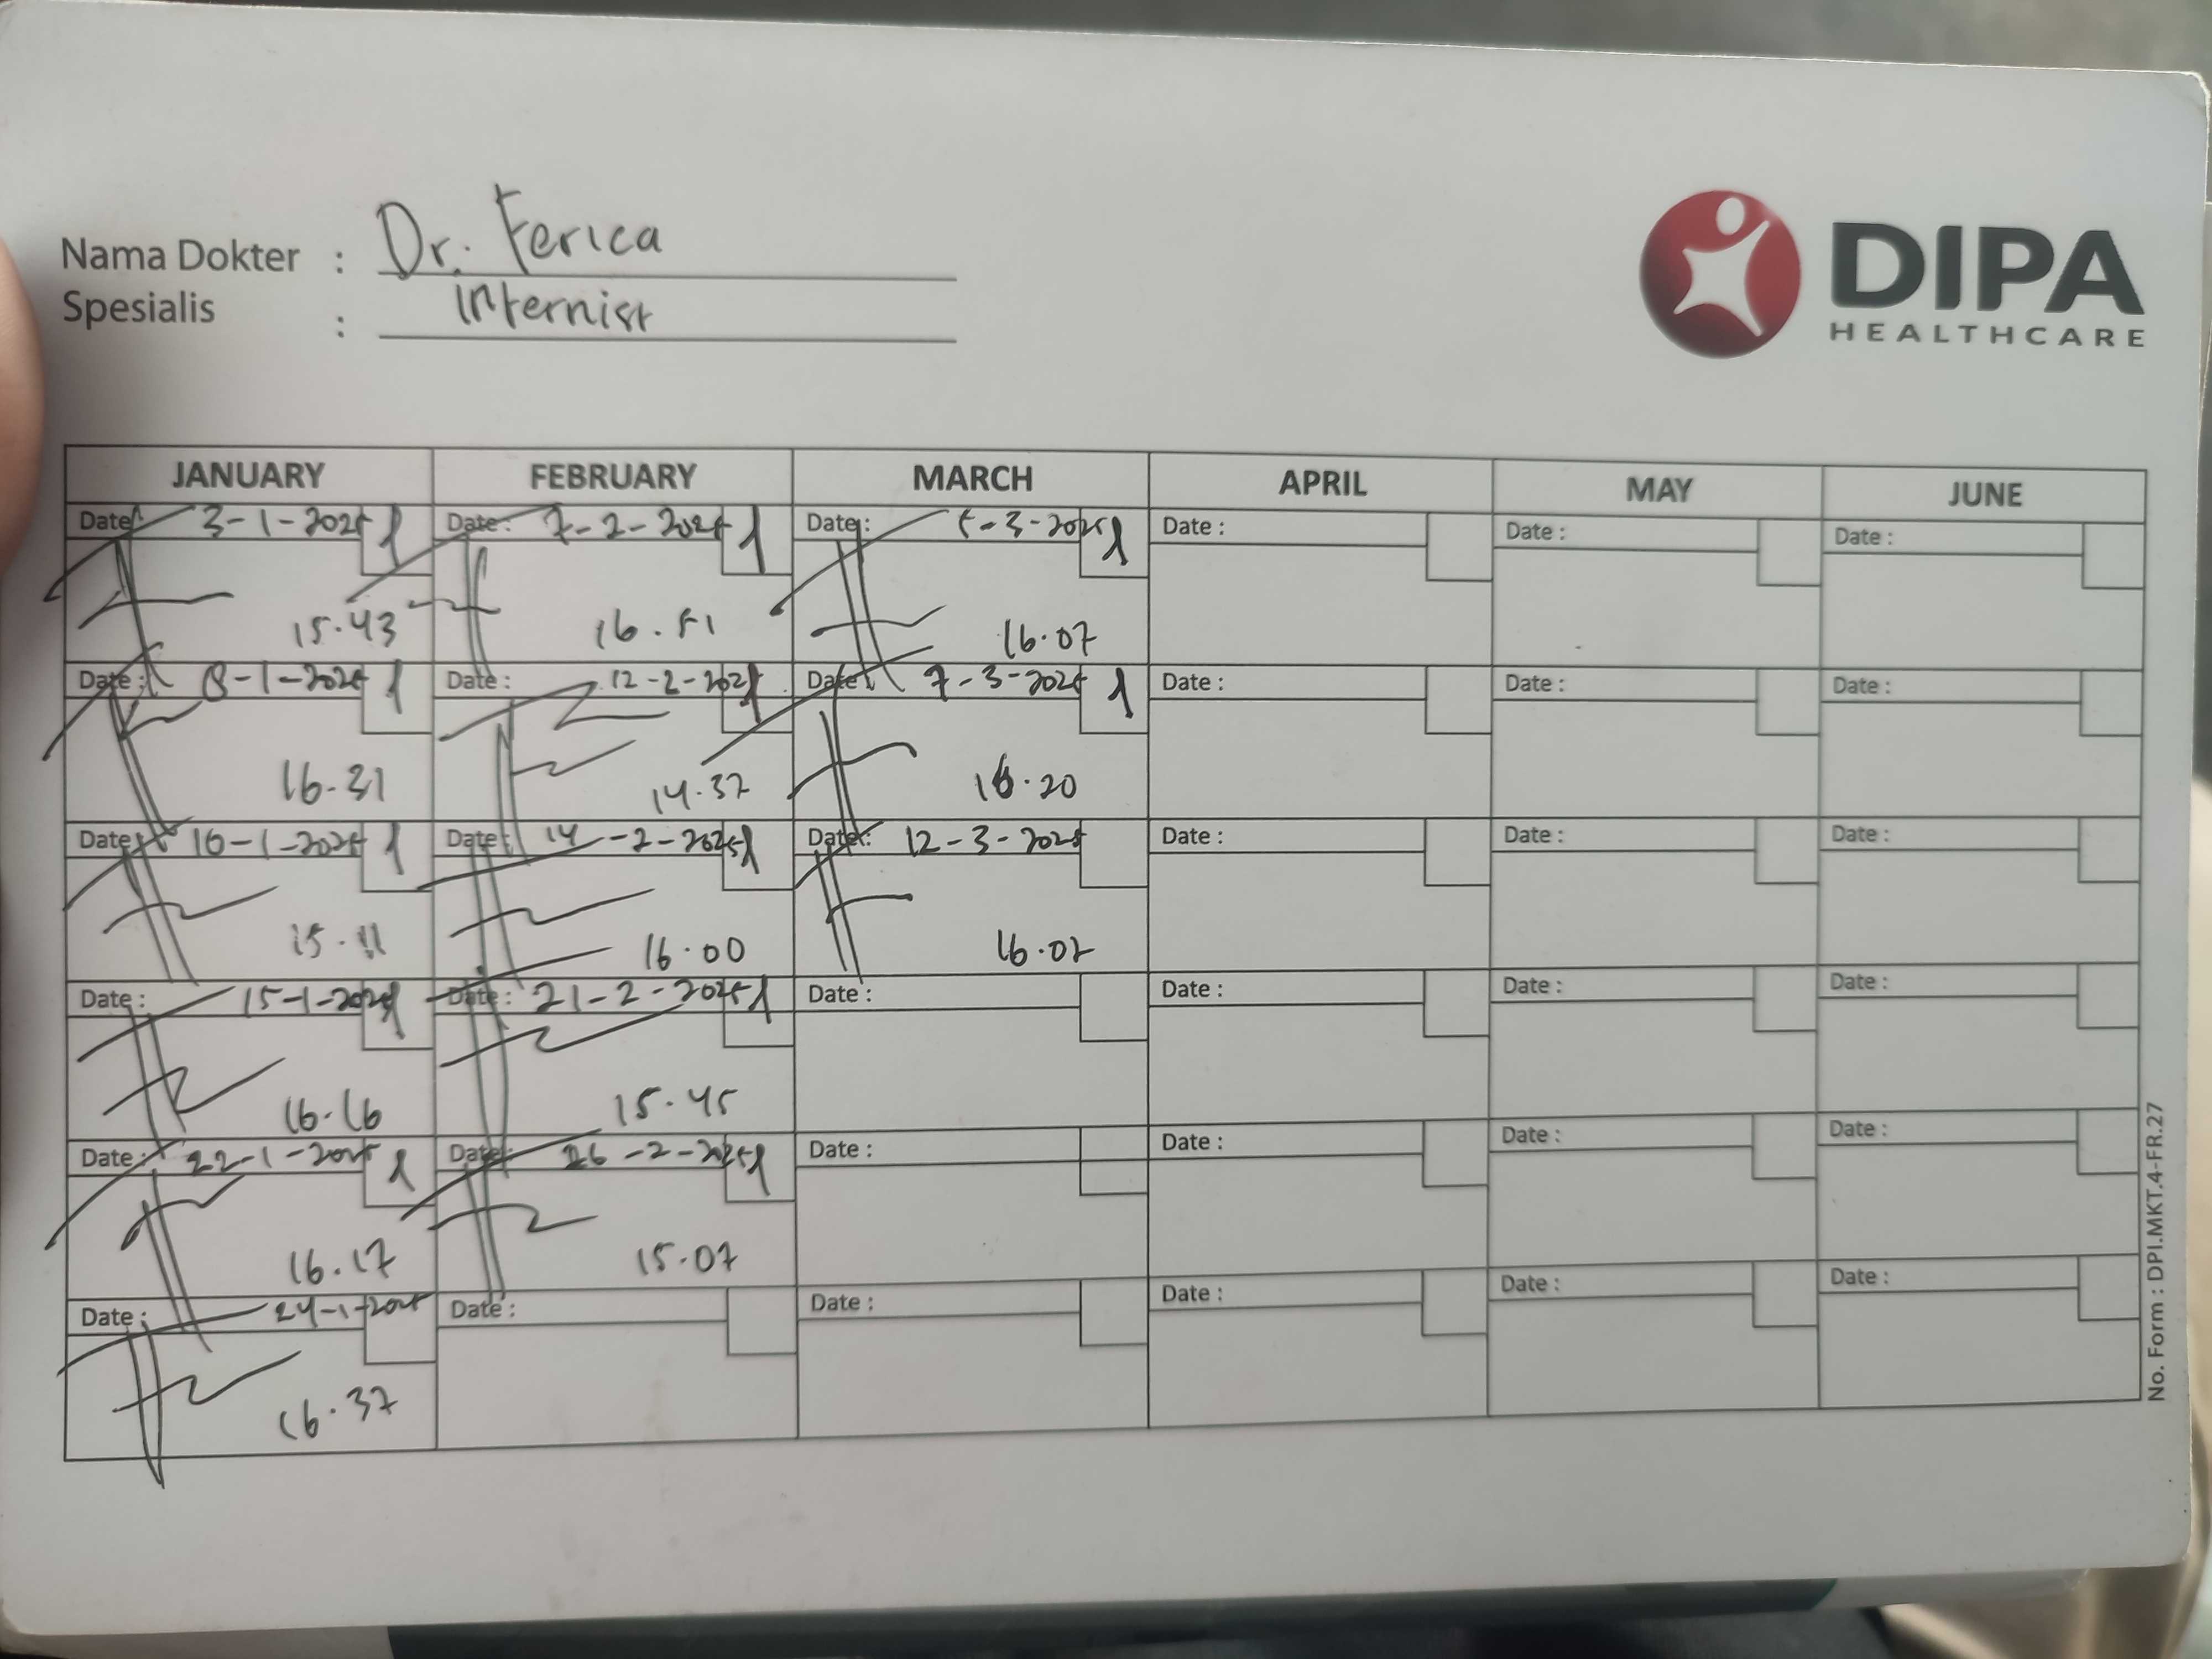 Nama Dokter : Dr. Ferica
Spesialis : Internist
DIPA
HEALTHCARE
JANUARY FEBRUARY MARCH APRIL MAY JUNE
Date: 3-1-2025 Date: 7-2-2025 Date: 5-3-2025 Date: Date: Date:
15.43 16.51 16.07
Date: 8-1-2025 Date: 12-2-2025 Date: 7-3-2025 Date: Date: Date:
16.31 14.37 16.20
Date: 10-1-2025 Date: 14-2-2025 Date: 12-3-2025 Date: Date: Date:
15.11 16.00 16.02
Date: 15-1-2025 Date: 21-2-2025 Date: Date: Date: Date:
16.16 15.45
Date: 22-1-2025 Date: 26-2-2025 Date: Date: Date: Date:
16.17 15.07
Date: 24-1-2025 Date: Date: Date: Date: Date:
16.37
No. Form : DPI.MKT.4-FR.27